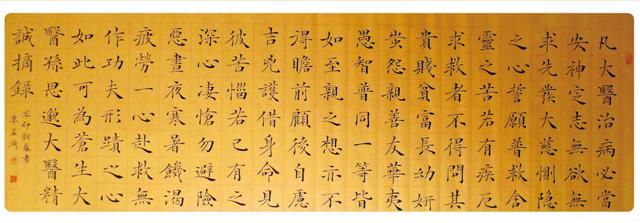 凡大醫治病必當
安神定志無欲無
求先發大慈惻隱
之心誓願普救含
靈之苦若有疾厄
求救者不得問其
貴賤貧富長幼妍
蚩怨親善友華夷
愚智普同一等皆
如至親之想亦不
得瞻前顧後自慮
吉兇護惜身命見
彼苦惱若己有之
深心淒愴勿避險
惡晝夜寒暑饑渴
疲勞一心赴救無
作功夫形蹟之心
如此可為蒼生大
醫孫思邈大醫精
誠摘錄
辛卯新春書